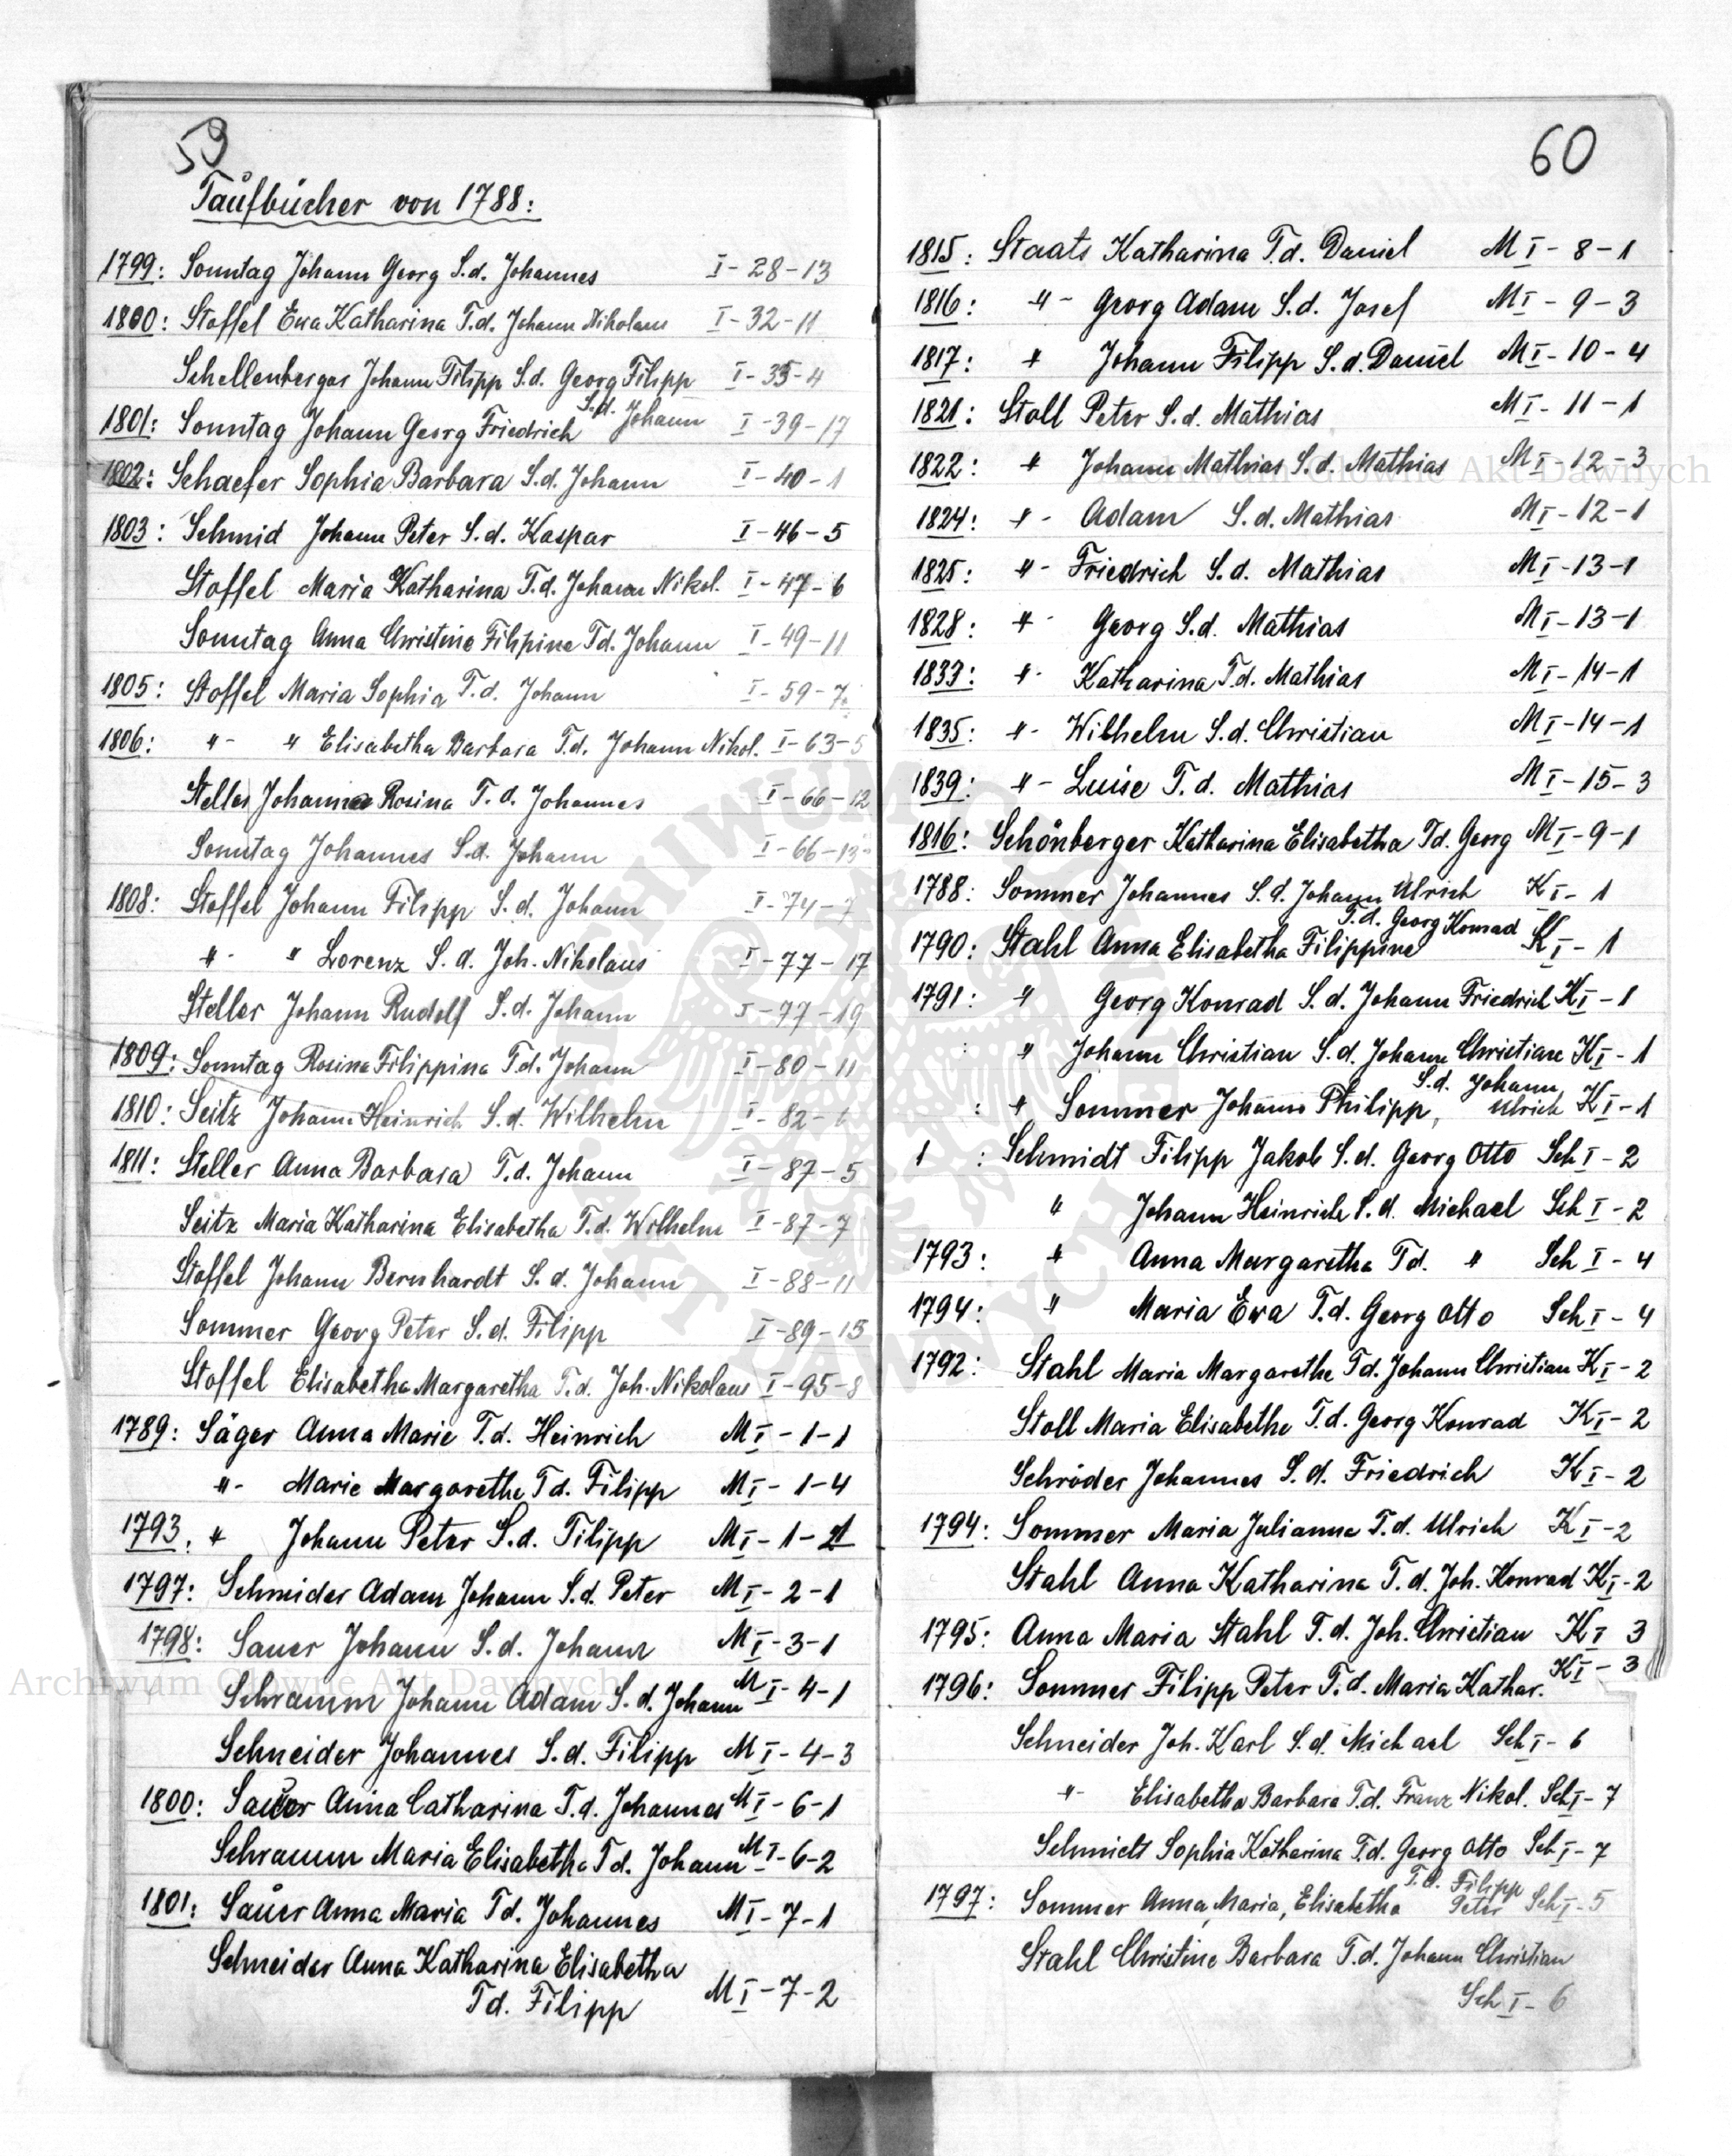 59
Taufbücher von 1788:
1799: Sonntag Johann Georg S.d. Johannes I-28-13
1800: Stoffel Ewa Katharina T.d. Johann Nikolaus I-32-11
Schellenberger Johann Filipp S.d. Georg Filipp I-35-4
1801: Sonntag Johann Georg Friedrich S.d. Johann I-39-17
1802: Schaefer Sophia Barbara S.d. Johann I-40-1
1803: Schmid Johann Peter S.d. Kaspar I-46-5
Stoffel Maria Katharina T.d. Johann Nikol. I-47-6
Sonntag Anna Christine Filipine T.d. Johann I-49-11
1805: Stoffel Maria Sophia T.d. Johann I-59-7
1806: "- " Elisabetha Barbara T.d. Johann Nikol. I-63-5
Steller Johanna Rosina T.d. Johannes I-66-12
Sonntag Johannes S.d. Johann I-66-13
1808: Stoffel Johann Filipp S.d. Johann I-74-7
"- " Lorenz S.d. Joh. Nikolaus I-77-17
Steller Johann Rudolf S.d. Johann I-77-19
1809: Sonntag Rosina Filippina T.d. Johann I-80-11
1810: Seitz Johann Heinrich S.d. Wilhelm I-82-6
1811: Steller Anna Barbara T.d. Johann I-87-5
Seitz Maria Katharina Elisabetha T.d. Wilhelm I-87-7
Stoffel Johann Bernhardt S.d. Johann I-88-11
Sommer Georg Peter S.d. Filipp I-89-15
Stoffel Elisabetha Margaretha T.d. Joh. Nikolaus I-95-8
1789: Säger Anna Marie T.d. Heinrich M I-1-1
"- Marie Margarethe T.d. Filipp M I-1-4
1793. " Johann Peter S.d. Filipp M I-1-1
1797: Schneider Adam Johann S.d. Peter M I-2-1
1798: Sauer Johann S.d. Johann M I-3-1
Schramm Johann Adam S.d. Johann M I-4-1
Schneider Johannes S.d. Filipp M I-4-3
1800: Sauer Anna Catharina T.d. Johannes M I-6-1
Schramm Maria Elisabetha T.d. Johann M I-6-2
1801: Sauer Anna Maria T.d. Johannes M I-7-1
Schneider Anna Katharina Elisabetha
T.d. Filipp M I-7-2
60
1815: Staats Katharina T.d. Daniel M I-8-1
1816: "- Georg Adam S.d. Josef M I-9-3
1817: " Johann Filipp S.d. Daniel M I-10-4
1821: Stoll Peter S.d. Mathias M I-11-1
1822: " Johann Mathias S.d. Mathias M I-12-3
1824: "- Adam S.d. Mathias M I-12-1
1825: "- Friedrich S.d. Mathias M I-13-1
1828: "- Georg S.d. Mathias M I-13-1
1833: "- Katharina T.d. Mathias M I-14-1
1835: "- Wilhelm S.d. Christian M I-14-1
1839: "- Luise T.d. Mathias M I-15-3
1816: Schönberger Katharina Elisabetha T.d. Georg M I-9-1
1788: Sommer Johannes S.d. Johann Ulrich K I-1
1790: Stahl Anna Elisabetha Filippine T.d. Georg Konrad K I-1
1791: " Georg Konrad S.d. Johann Friedrich K I-1
: " Johann Christian S.d. Johann Christian K I-1
: " Sommer Johann Philipp, S.d. Johann Ulrich K I-1
1 : Schmidt Filipp Jakob S.d. Georg Otto Sch I-2
" Johann Heinrich S.d. Michael Sch I-2
1793: " Anna Margaretha T.d. " Sch I-4
1794: " Maria Ewa T.d. Georg Otto Sch I-4
1792: Stahl Maria Margarethe T.d. Johann Christian K I-2
Stoll Maria Elisabethe T.d. Georg Konrad K I-2
Schröder Johannes S.d. Friedrich K I-2
1794: Sommer Maria Julianna T.d. Ulrich K I-2
Stahl Anna Katharina T.d. Joh. Konrad K I-2
1795: Anna Maria Stahl T.d. Joh. Christian K I 3
1796: Sommer Filipp Peter T.d. Maria Kathar. K I-3
Schneider Joh. Karl S.d. Michael Sch I-6
"- Elisabetha Barbara T.d. Franz Nikol. Sch I-7
Schmidt Sophia Katharina T.d. Georg Otto Sch I-7
1797: Sommer Anna, Maria, Elisabetha T.d. Filipp Peter Sch I-5
Stahl Christine Barbara T.d. Johann Christian
Sch I-6
Archiwum Główne Akt Dawnych
Archiwum Główne Akt Dawnych
ARCHIWUM GŁÓWNE AKT DAWNYCH